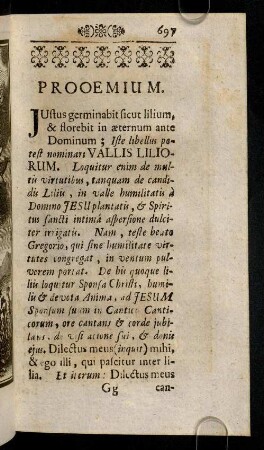 697
PROOEMIUM.
JUstus germinabit sicut lilium,
& florebit in æternum ante
Dominum; Iste libellus po-
test nominari VALLIS LILIO-
RUM. Loquitur enim de mul-
tis virtutibus, tanquam de candi-
dis Liliis, in valle humilitatis à
Domino JESU plantatis, & Spiri-
tus sancti intimâ aspersione dulci-
ter irrigatis. Nam, teste beato
Gregorio, qui sine humilitate vir-
tutes congregat, in ventum pul-
verem portat. De his quoque li-
liis loquitur Sponsa Christi, humi-
lis & devota Anima, ad JESUM
Sponsum suum in Cantico Canti-
corum, ore cantans & corde jubi-
lans, de visitatione sui, & donis
ejus. Dilectus meus (inquit) mihi,
& ego illi, qui pascitur inter li-
lia. Et iterum: Dilectus meus
Gg can-